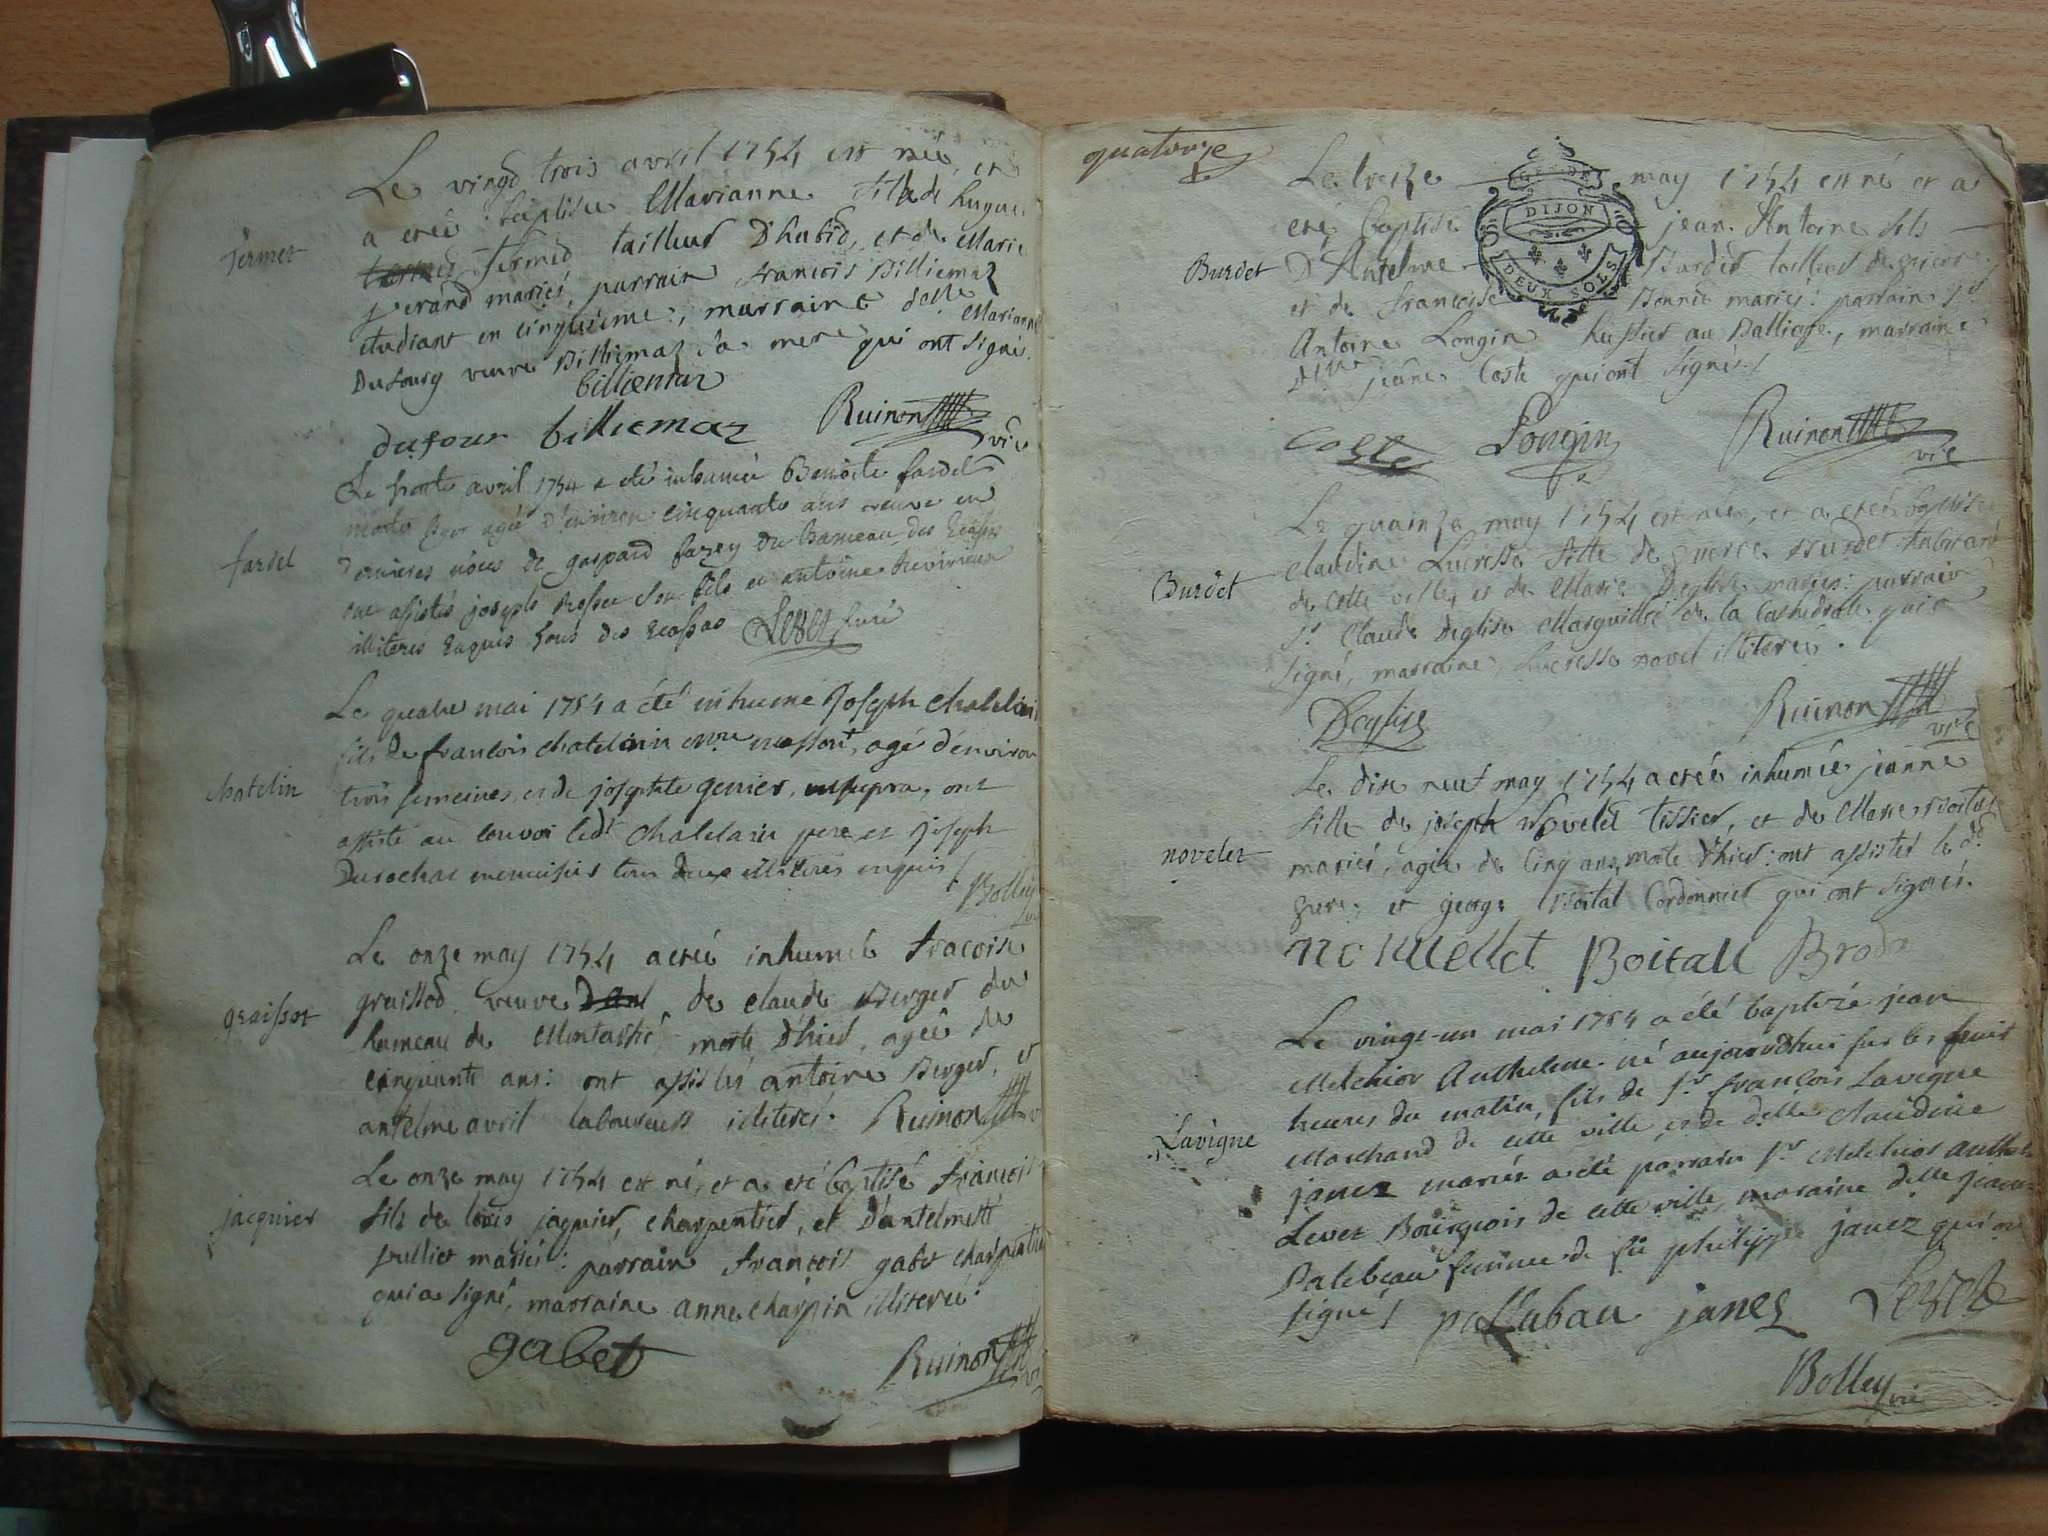 Le vingt trois avril 1754 est née, et
a eteé baptisée Marianne fille de hugue
fermet
fermed tailleur D'habit, et de Marie
perand mariés, parrain francois Billiemaz
etudiant en cinquieme, marraine delle Marianne
Dufourg veuve Billiemaz sa mere qui ont signés.
billiemaz
dufour billiemaz Ruinon vic
Le trente avril 1754 a eté inhumée Benoite fardel
morte hyer agée d'environ cinquante ans veuve en
fardel
dernieres nôces de gaspard fazey du hameau des Ecassas
ont assistés joseph son fils et antoine
illiteres Enquis tous des Ecassas Levet Curé
Le quatre mai 1754 a été inhumé Joseph Chatelain
fils de francois chatelain agé d'environ
chatelin
trois semeines, et de josephte genier, ont
assisté au convoi ledt Chatelain pere et joseph
Durochat menuisier tous deux illiterés enquis /.
Bolley
Le onze may 1754 a eteé inhumée fracoise
graissod veuve de claude Berger du
graissot
hameau de morte D'hier, ageé de
cinquante ans: ont assistés antoine Berger, et
antelme avril laboureurs illiterés. Ruinon
Le onze may 1754 est né, et a eté baptisé francois
jacquier
fils de louis jaquier, charpentier, et D'antelmette
Vulliet mariés: parrain francois gabet charpentier
qui a signé, marraine anne charpin illiterée.
gabet Ruinon
quatorze
Le treize may 1754 est né et a
GEN DE
DIJON
DEUX SOLS
eté baptisé jean Antoine fils
Burdet
D'Antelme Burdet tailleur de pierre
et de francoise Bonne mariés: parrain sr
Antoine Longin huissier au Balliage, marraine
Delle jeane Coste qui ont signés./
Coste Longin Ruinon vic
Le quainze may 1754 est née, et a eteé baptisée
Claudine Lucresse fille de pierre Burdet
Burdet
de cette ville, et de Marie Deglise mariés: parrain
sr Claude Deglise Marguillié de la Cathedrale qui a
signé, marraine, Lucresse novel illiterée.
Deglise Ruinon vic
Le dix neuf may 1754 a eteé inhumée jeanne
fille de joseph Novelet tissier, et de Marie Boitat
novelet
mariés, agée de cinq ans, morte D'hier: ont assistés le dt
pere, et george Boitat Cordonnier qui ont signés.
nouuellet Boitall
Le vingt-un mai 1754 a été baptizé jean
Melchior Anthelme né aujourdhui sur les huit
heures du matin, fils de sr francois Lavigne
Lavigne
Marchand de cette ville, et de delle Claudine
janez mariés a été parrain sr Melchior anthelme
Levet Bourgeois de cette ville, maraine delle jeanne
Palebeau femme de fû philippe janez qui ont
signé / pallubau janez Levet
Bolley vic